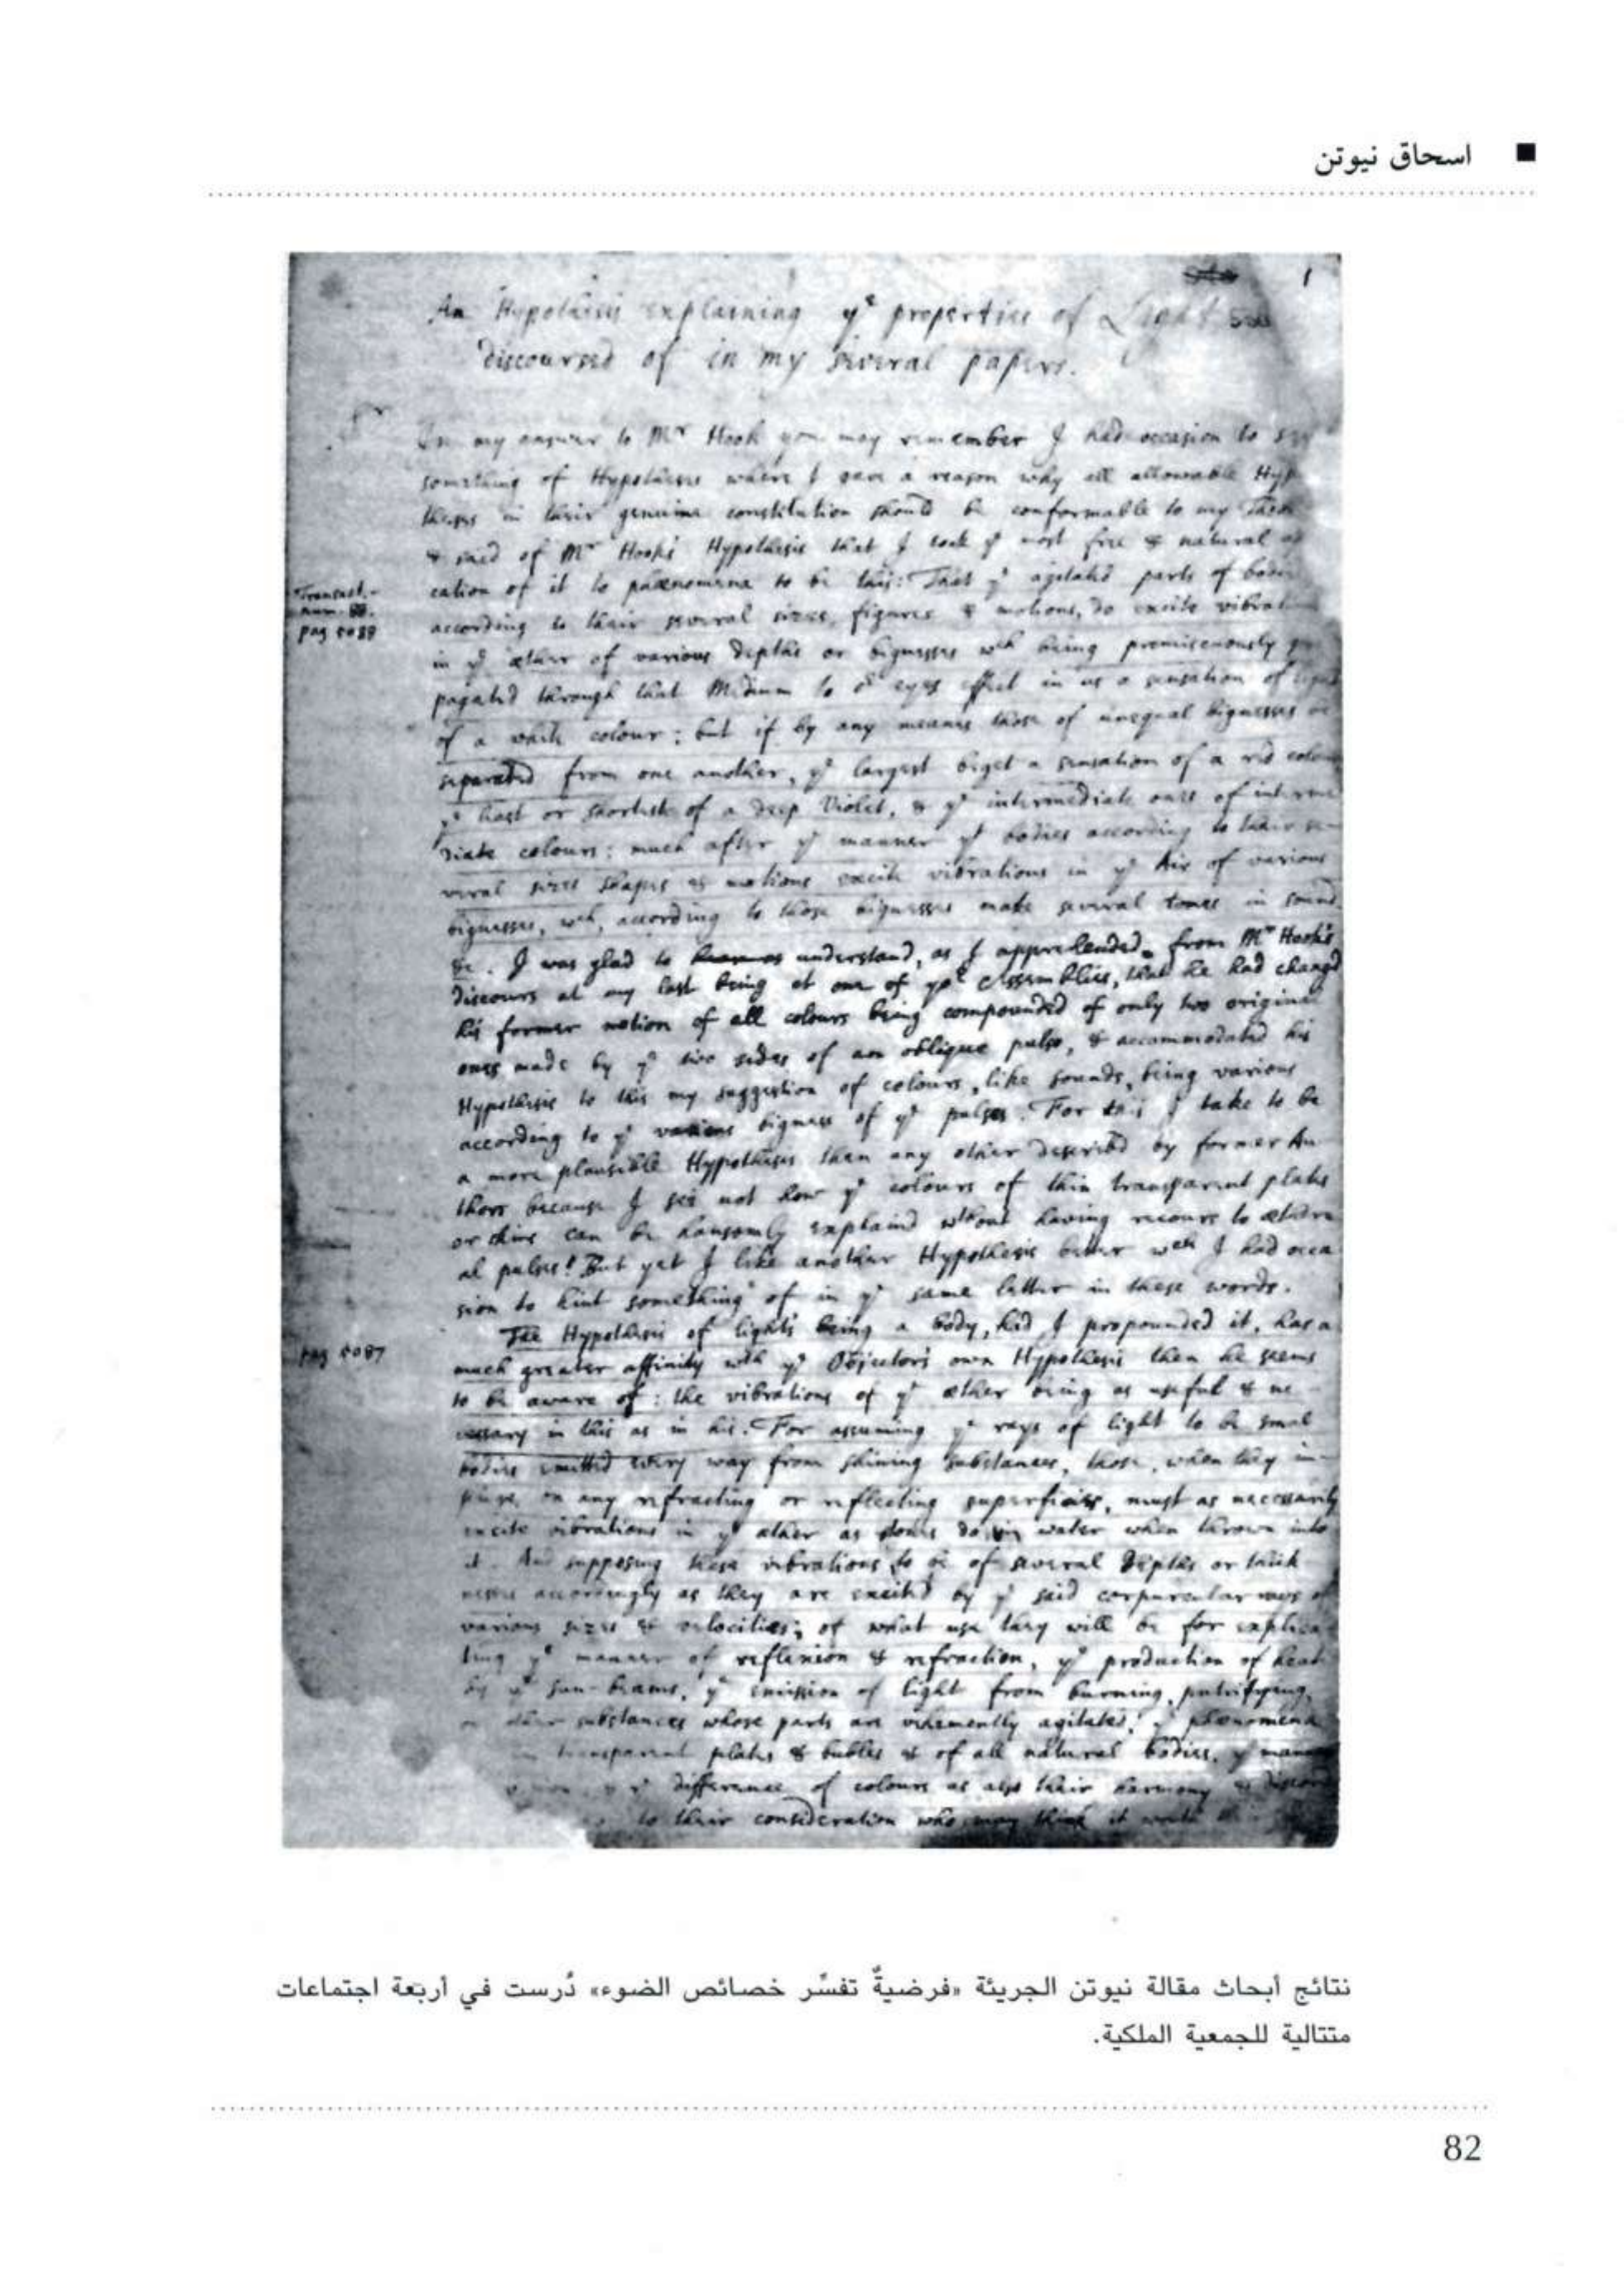 اسحاق نيوتن
1
An Hypothesis explaining yᵉ properties of Light
discoursed of in my several papers.
Sʳ
In my answer to Mʳ Hook you may remember I had occasion to say
something of Hypotheses where I gave a reason why all allowable Hypo
theses in their genuine constitution should be conformable to my
& said of Mʳ Hook's Hypothesis that I took yᵉ most free & natural
cation of it to phænomena to be this: That yᵉ agitated parts of bodies
Transact.
num. 88.
pag 5088
according to their several sizes, figures & motions, do excite vibrations
in yᵉ æther of various depths or bignesses wᶜʰ being promiscuously
pagated through that Medium to oʳ eyes effect in us a sensation of light
of a white colour; but if by any means those of unequal bignesses
separated from one another, yᵉ largest beget a sensation of a red colour
yᵉ least or shortest of a deep Violet, & yᵉ intermediate ones of interme
diate colours; much after yᵉ manner yᵗ bodies according to their se-
veral sizes shapes & motions excite vibrations in yᵉ Air of various
bignesses, wᶜʰ, according to those bignesses make several tones in sound
&c. I was glad to understand, as I apprehended, from Mʳ Hook's
discours at my last being at one of yoʳ Assemblies, that he had changed
his former notion of all colours being compounded of only two original
ones made by yᵉ two sides of an oblique pulse, & accommodated his
Hypothesis to this my suggestion of colours, like sounds, being various
according to yᵉ various bigness of yᵉ pulses. For this I take to be
a more plausible Hypothesis then any other described by former Au
thors because I see not how yᵉ colours of thin transparent plates
or skins can be hansomly explained wᵗʰout having recours to æthere
al pulses! But yet I like another Hypothesis better wᶜʰ I had occa
sion to hint something of in yᵉ same letter in these words.
The Hypothesis of light's being a body, had I propounded it, has a
pag 5087
much greater affinity wᵗʰ yᵉ Objector's own Hypothesis then he seems
to be aware of: the vibrations of yᵉ æther being as useful & ne
cessary in this as in his. For assuming yᵉ rays of light to be smal
bodies emitted every way from shining substances, those, when they im-
pinge on any refracting or reflecting superficies, must as necessarily
excite vibrations in yᵉ æther as stones do in water when thrown into
it. And supposing these vibrations to be of several depths or thick
nesses accordingly as they are excited by yᵉ said corpuscular rays of
various sizes & velocities; of what use they will be for explica
ting yᵉ manner of reflexion & refraction, yᵉ production of heat
by yᵉ sun-beams, yᵉ emission of light from burning, putrifying,
or other substances whose parts are vehemently agitated, yᵉ phænomena
transparent plates & bubles & of all natural bodies, yᵉ manner
yᵉ difference of colours as also their harmony & discord
to their consideration who may think it worth
نتائج أبحاث مقالة نيوتن الجريئة «فرضيةٌ تفسِّر خصائص الضوء» دُرست في أربعة اجتماعات
متتالية للجمعية الملكية.
82